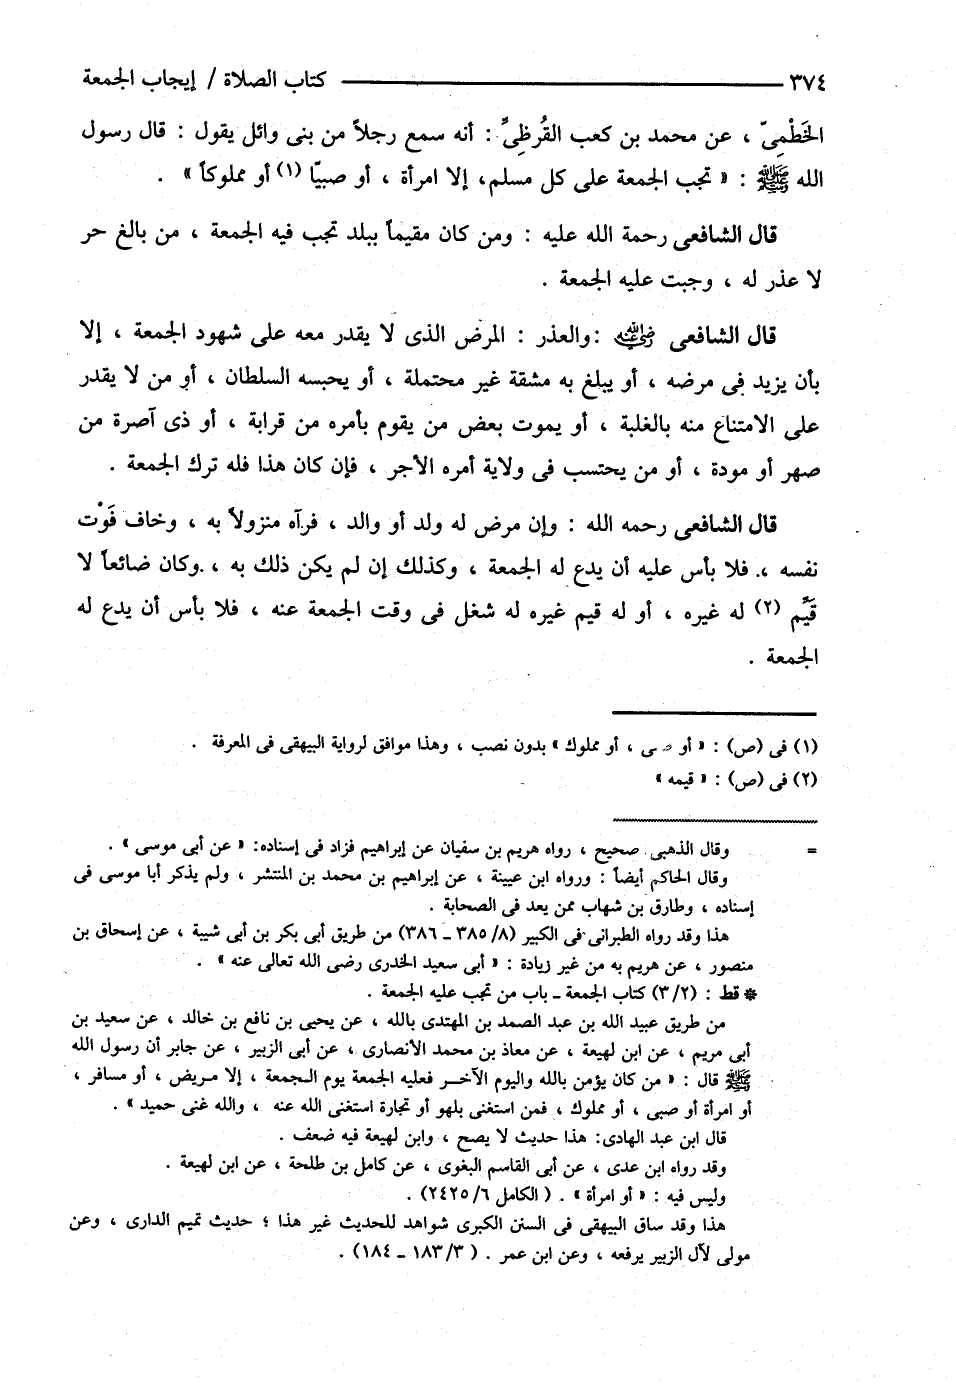 ٣٧٤ كتاب الصلاة / إيجاب الجمعة
الخَطْمِىّ ، عن محمد بن كعب القُرظِىِّ : أنه سمع رجلاً من بنى وائل يقول : قال رسول
الله ﷺ : « تجب الجمعة على كل مسلم، إلا امرأة ، أو صبيّا (١) أو مملوكاً » .
قال الشافعى رحمة الله عليه : ومن كان مقيماً ببلد تجب فيه الجمعة ، من بالغ حر
لا عذر له ، وجبت عليه الجمعة .
قال الشافعى رضي الله عنه :والعذر : المرض الذى لا يقدر معه على شهود الجمعة ، إلا
بأن يزيد فى مرضه ، أو يبلغ به مشقة غير محتملة ، أو يحبسه السلطان ، أو من لا يقدر
على الامتناع منه بالغلبة ، أو يموت بعض من يقوم بأمره من قرابة ، أو ذى آصرة من
صهر أو مودة ، أو من يحتسب فى ولاية أمره الأجر ، فإن كان هذا فله ترك الجمعة .
قال الشافعى رحمه الله : وإن مرض له ولد أو والد ، فرآه منزولاً به ، وخاف فَوْت
نفسه ، فلا بأس عليه أن يدع له الجمعة ، وكذلك إن لم يكن ذلك به ، وكان ضائعاً لا
قَيِّم (٢) له غيره ، أو له قيم غيره له شغل فى وقت الجمعة عنه ، فلا بأس أن يدع له
الجمعة .
(١) فى (ص) : « أو صبى ، أو مملوك » بدون نصب ، وهذا موافق لرواية البيهقى فى المعرفة .
(٢) فى (ص) : « قيمه »
= وقال الذهبى صحيح ، رواه هريم بن سفيان عن إبراهيم فزاد فى إسناده: « عن أبى موسى » .
وقال الحاكم أيضاً : ورواه ابن عيينة ، عن إبراهيم بن محمد بن المنتشر ، ولم يذكر أبا موسى فى
إسناده ، وطارق بن شهاب ممن يعد فى الصحابة .
هذا وقد رواه الطبرانى فى الكبير (٨/ ٣٨٥ ـ ٣٨٦) من طريق أبى بكر بن أبى شيبة ، عن إسحاق بن
منصور ، عن هريم به من غير زيادة : « أبى سعيد الخدرى رضى الله تعالى عنه » .
* قط : (٢/ ٣) كتاب الجمعة ـ باب من تجب عليه الجمعة .
من طريق عبيد الله بن عبد الصمد بن المهتدى بالله ، عن يحيى بن نافع بن خالد ، عن سعيد بن
أبى مريم ، عن ابن لهيعة ، عن معاذ بن محمد الأنصارى ، عن أبى الزبير ، عن جابر أن رسول الله
ﷺ قال : « من كان يؤمن بالله واليوم الآخر فعليه الجمعة يوم الجمعة ، إلا مريض ، أو مسافر ،
أو امرأة أو صبى ، أو مملوك ، فمن استغنى بلهو أو تجارة استغنى الله عنه ، والله غنى حميد » .
قال ابن عبد الهادى: هذا حديث لا يصح ، وابن لهيعة فيه ضعف .
وقد رواه ابن عدى ، عن أبى القاسم البغوى ، عن كامل بن طلحة ، عن ابن لهيعة .
وليس فيه : « أو امرأة » . ( الكامل ٦/ ٢٤٢٥) .
هذا وقد ساق البيهقى فى السنن الكبرى شواهد للحديث غير هذا ؛ حديث تميم الدارى ، وعن
مولى لآل الزبير يرفعه ، وعن ابن عمر . ( ٣/ ١٨٣ ـ ١٨٤) .